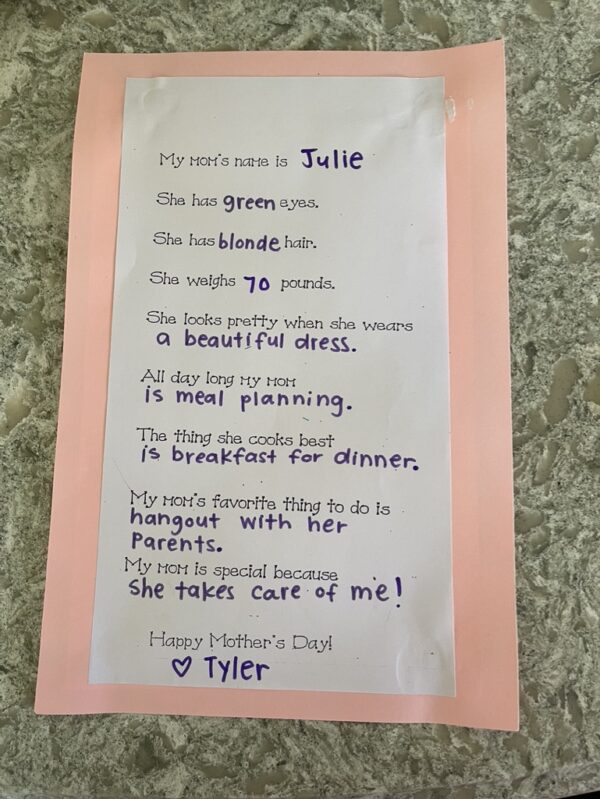 My mom's name is Julie
She has green eyes.
She has blonde hair.
She weighs 70 pounds.
She looks pretty when she wears
a beautiful dress.
All day long my mom
is meal planning.
The thing she cooks best
is breakfast for dinner.
My mom's favorite thing to do is
hangout with her
Parents.
My mom is special because
she takes care of me!
Happy Mother's Day!
♡ Tyler